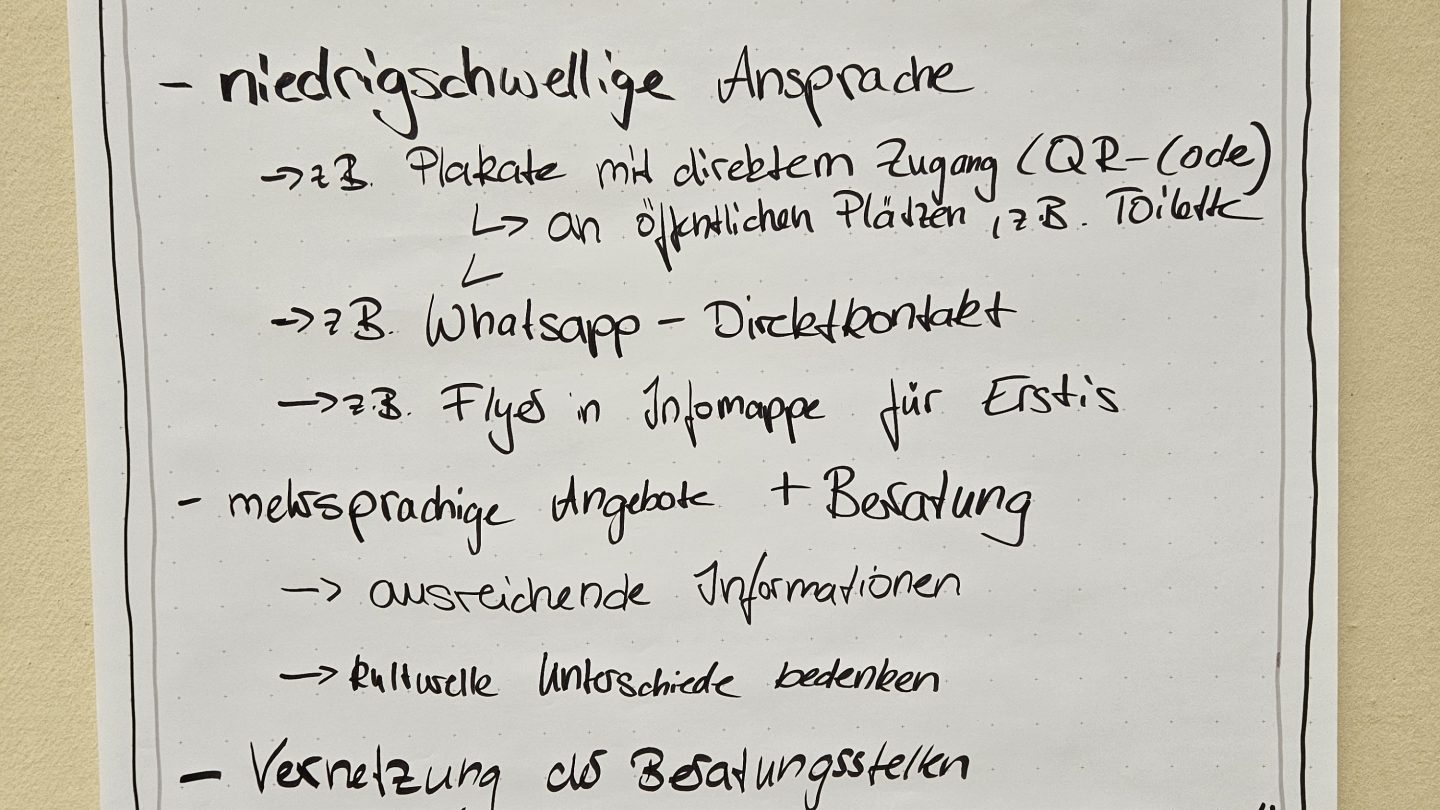 - niedrigschwellige Ansprache
→ z.B. Plakate mit direktem Zugang (QR-Code)
↳ an öffentlichen Plätzen, z.B. Toilette
→ z.B. Whatsapp - Direktkontakt
→ z.B. Flyer in Infomappe für Erstis
- mehrsprachige Angebote + Beratung
→ ausreichende Informationen
→ kulturelle Unterschiede bedenken
- Vernetzung der Beratungsstellen